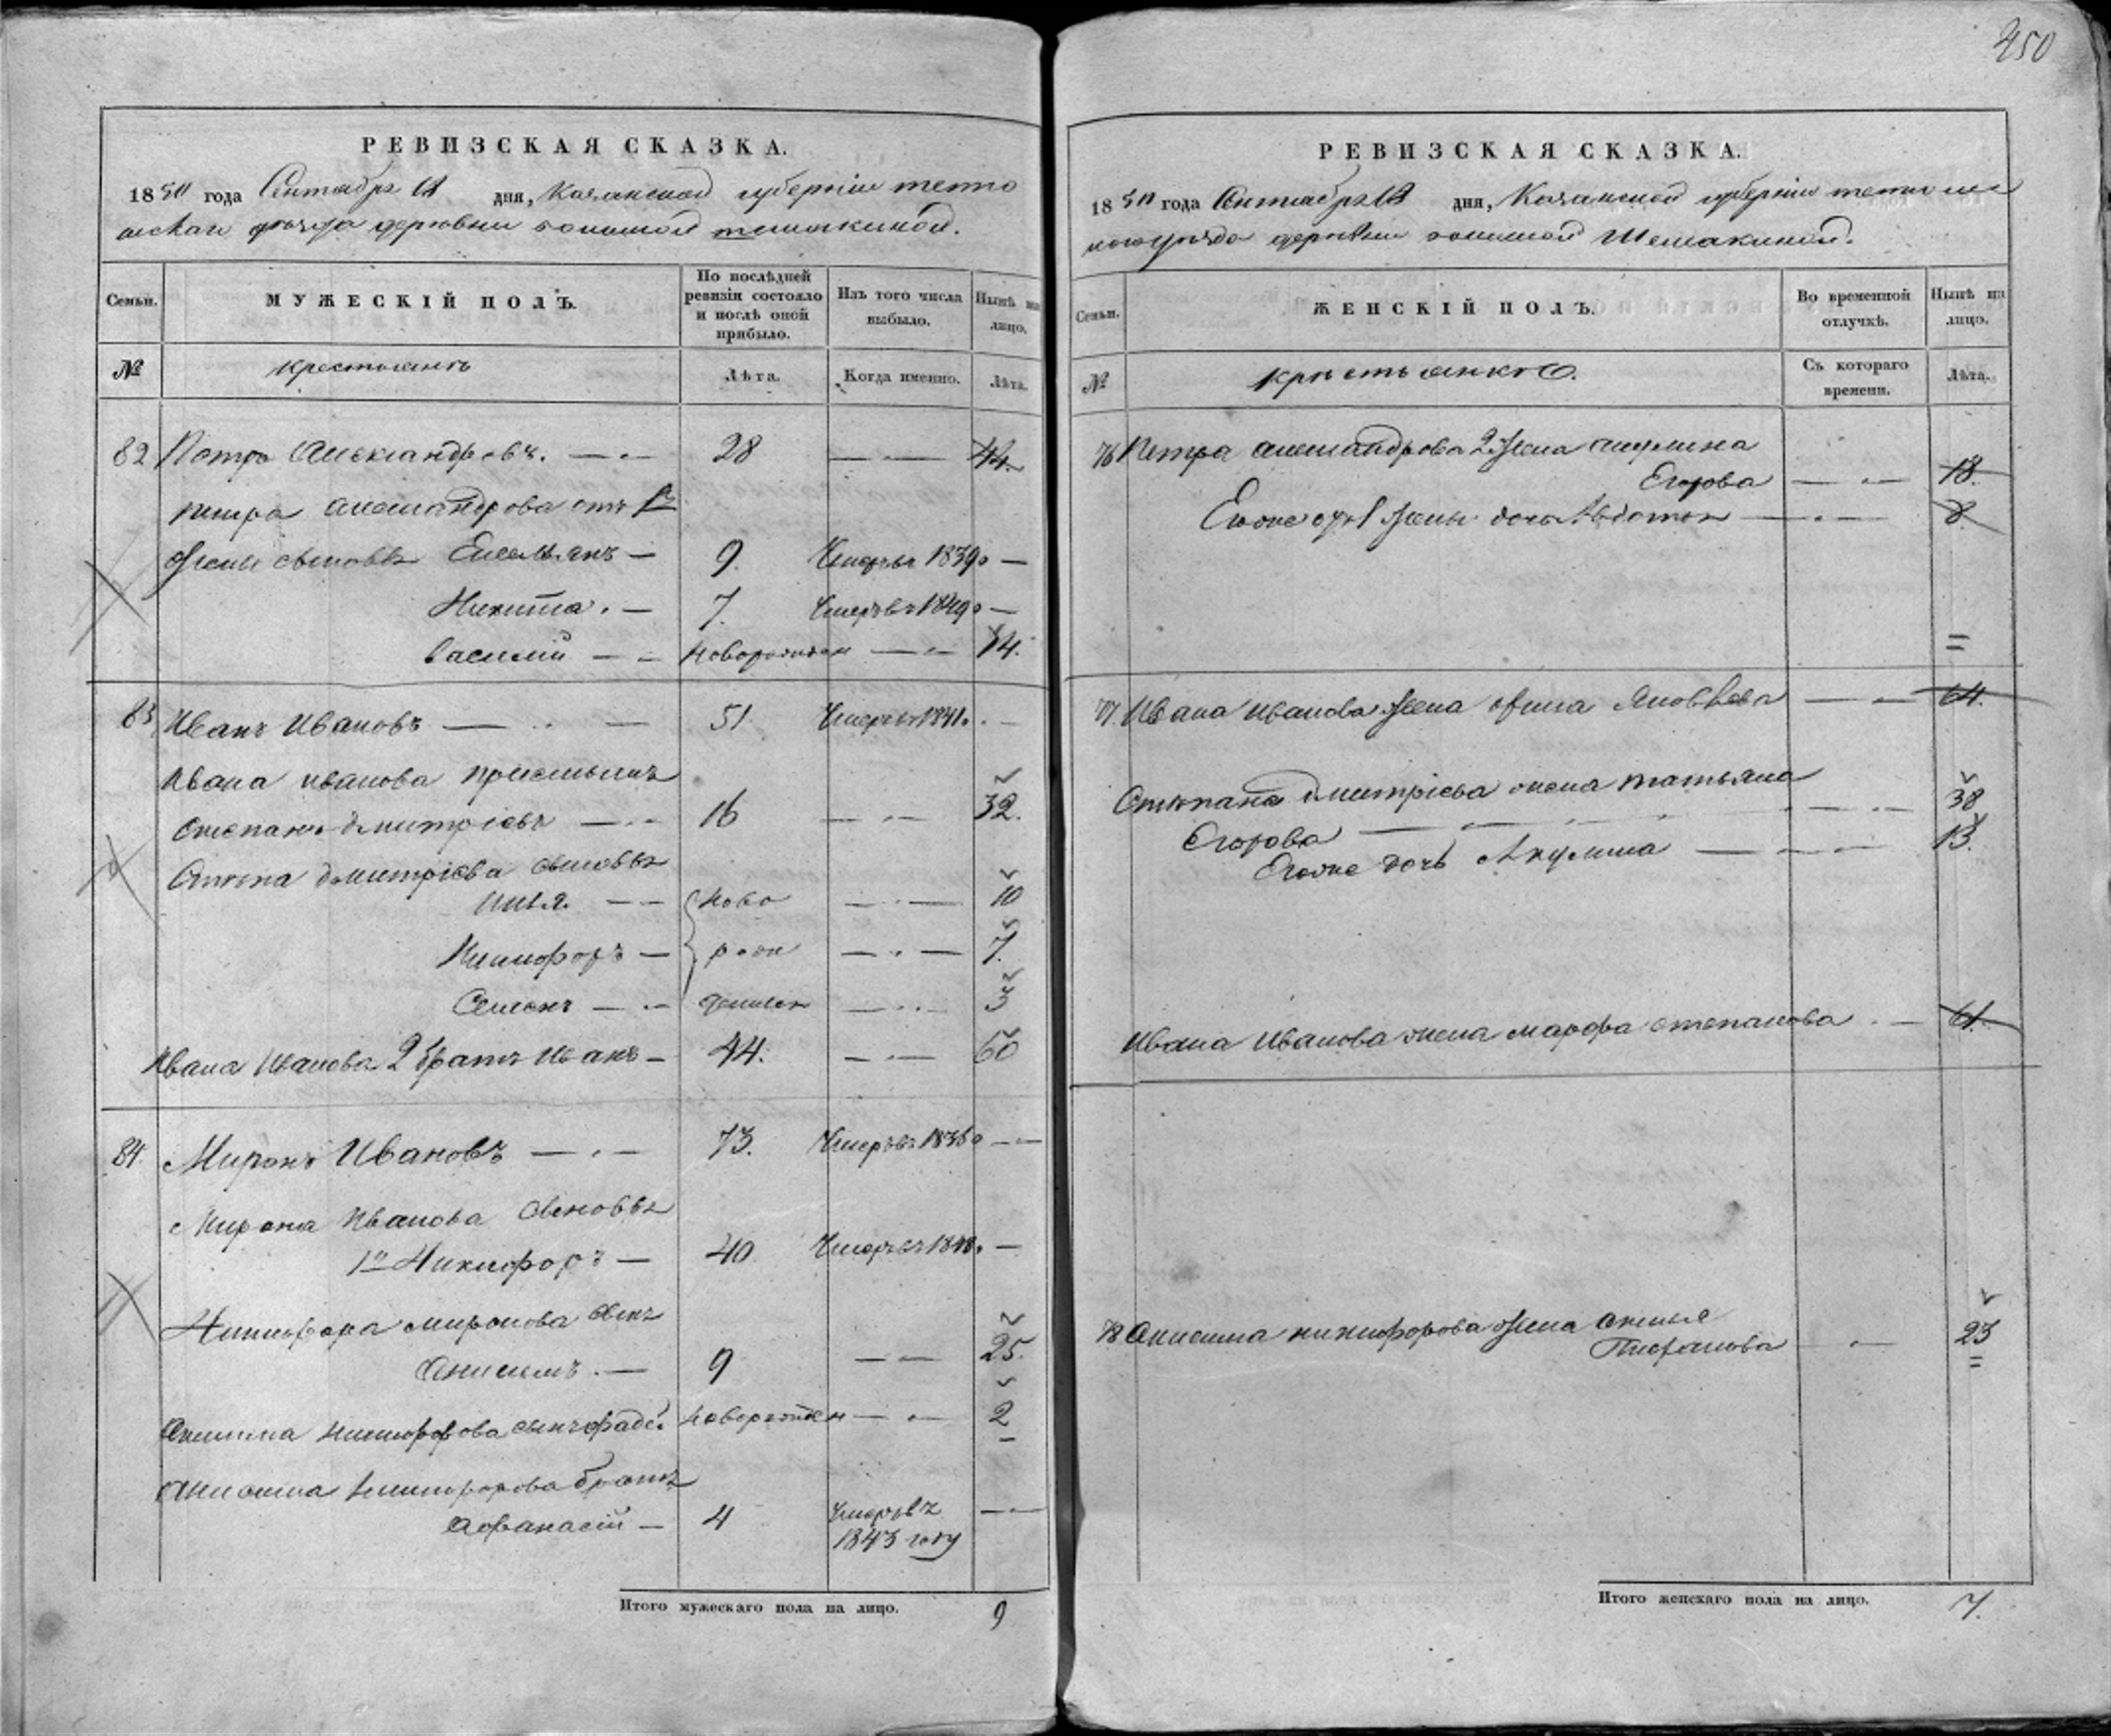 450
РЕВИЗСКАЯ СКАЗКА.
1850 года Сентября 12 дня, Казанской губерніи тетю
шскаго уезда деревни большой шемякиной.
Семьи. МУЖЕСКІЙ ПОЛЪ. По послѣдней ревизіи состояло и послѣ оной прибыло. Изъ того числа выбыло. Нынѣ на лицо.
№ крестьянъ Лѣта. Когда именно. Лѣта.
82 Петръ Александровъ. — 28 — 44.
Петра Александрова отъ 1й
жены сыновья Емельянъ — 9. Умеръ въ 1839 —
Никита. — 7. Умеръ въ 1840 —
Василій — новорожден — 14.
83 Иванъ Ивановъ — 51 Умеръ въ 1841. —
Ивана иванова пріемышъ
Степанъ дмитріевъ — 16 — 32.
Степана дмитріева сыновья
Илья — ново — 10
Никифоръ — рож — 7.
Семенъ — денные — 3
Ивана Иванова 2 братъ Иванъ — 44. — 60
84. Миронъ Ивановъ — 73. Умеръ въ 1836 —
Мирона Иванова сыновья
1й Никифоръ — 40 Умеръ въ 1848. —
Никифора миронова сынъ
Анисимъ. — 9 — 25.
Анисима никифорова сынъ фадей новорожден — 2
Анисима никифорова братъ
Афанасій — 4 Умеръ въ —
1843 году
Итого мужескаго пола на лицо. 9
РЕВИЗСКАЯ СКАЗКА.
1850 года Сентября 12 дня, Казанской губерніи тетюш
скаго уезда деревни большой Шемякиной.
Семьи. ЖЕНСКІЙ ПОЛЪ. Во временной отлучкѣ. Нынѣ на лицо.
№ крестьянки. Съ котораго времени. Лѣта.
76 Петра александрова 2 жена акулина
Егорова — 18.
Егоже отъ 1 жены дочь Авдотья — 8.
77. Ивана иванова жена Яковлева — 64.
Степана дмитріева жена татьяна
Егорова — 38
Егоже дочь Акулина — 13.
Ивана Иванова жена марфа степанова. — 61.
78 Анисима никифорова жена
— 23
Итого женскаго пола на лицо. 7.